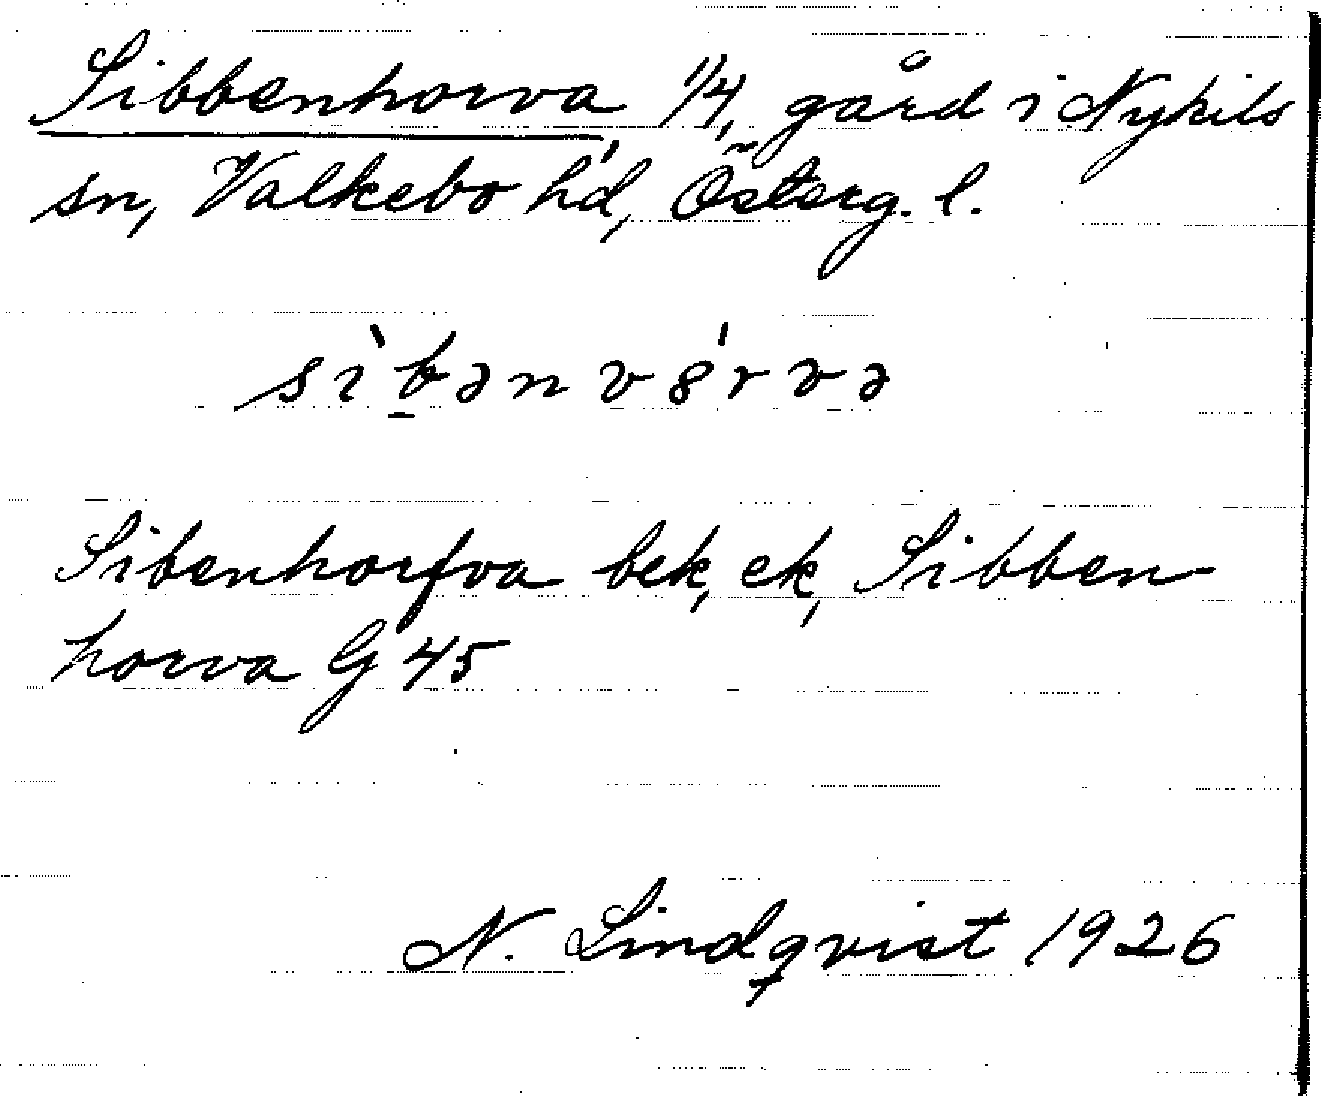 Sibbenhorva 1/4, gård i Nykils
sn, Valkebo hd, Österg. l.
sìbənvȣ́rvə
Sibenhorfva bek, ek, Sibben-
horva G 45
N. Lindqvist 1926